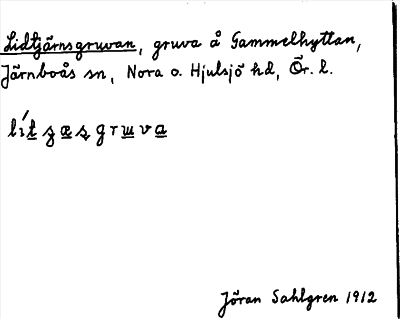 Lidtjärnsgruvan, gruva å Gammelhyttan,
Järnboås sn, Nora o. Hjulsjö hd, Ör. l.
Jöran Sahlgren 1912